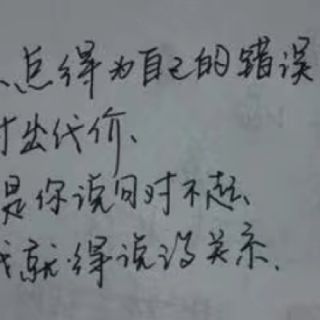 总得为自己的错误
付出代价、
是你说句对不起、
我就得说没关系、